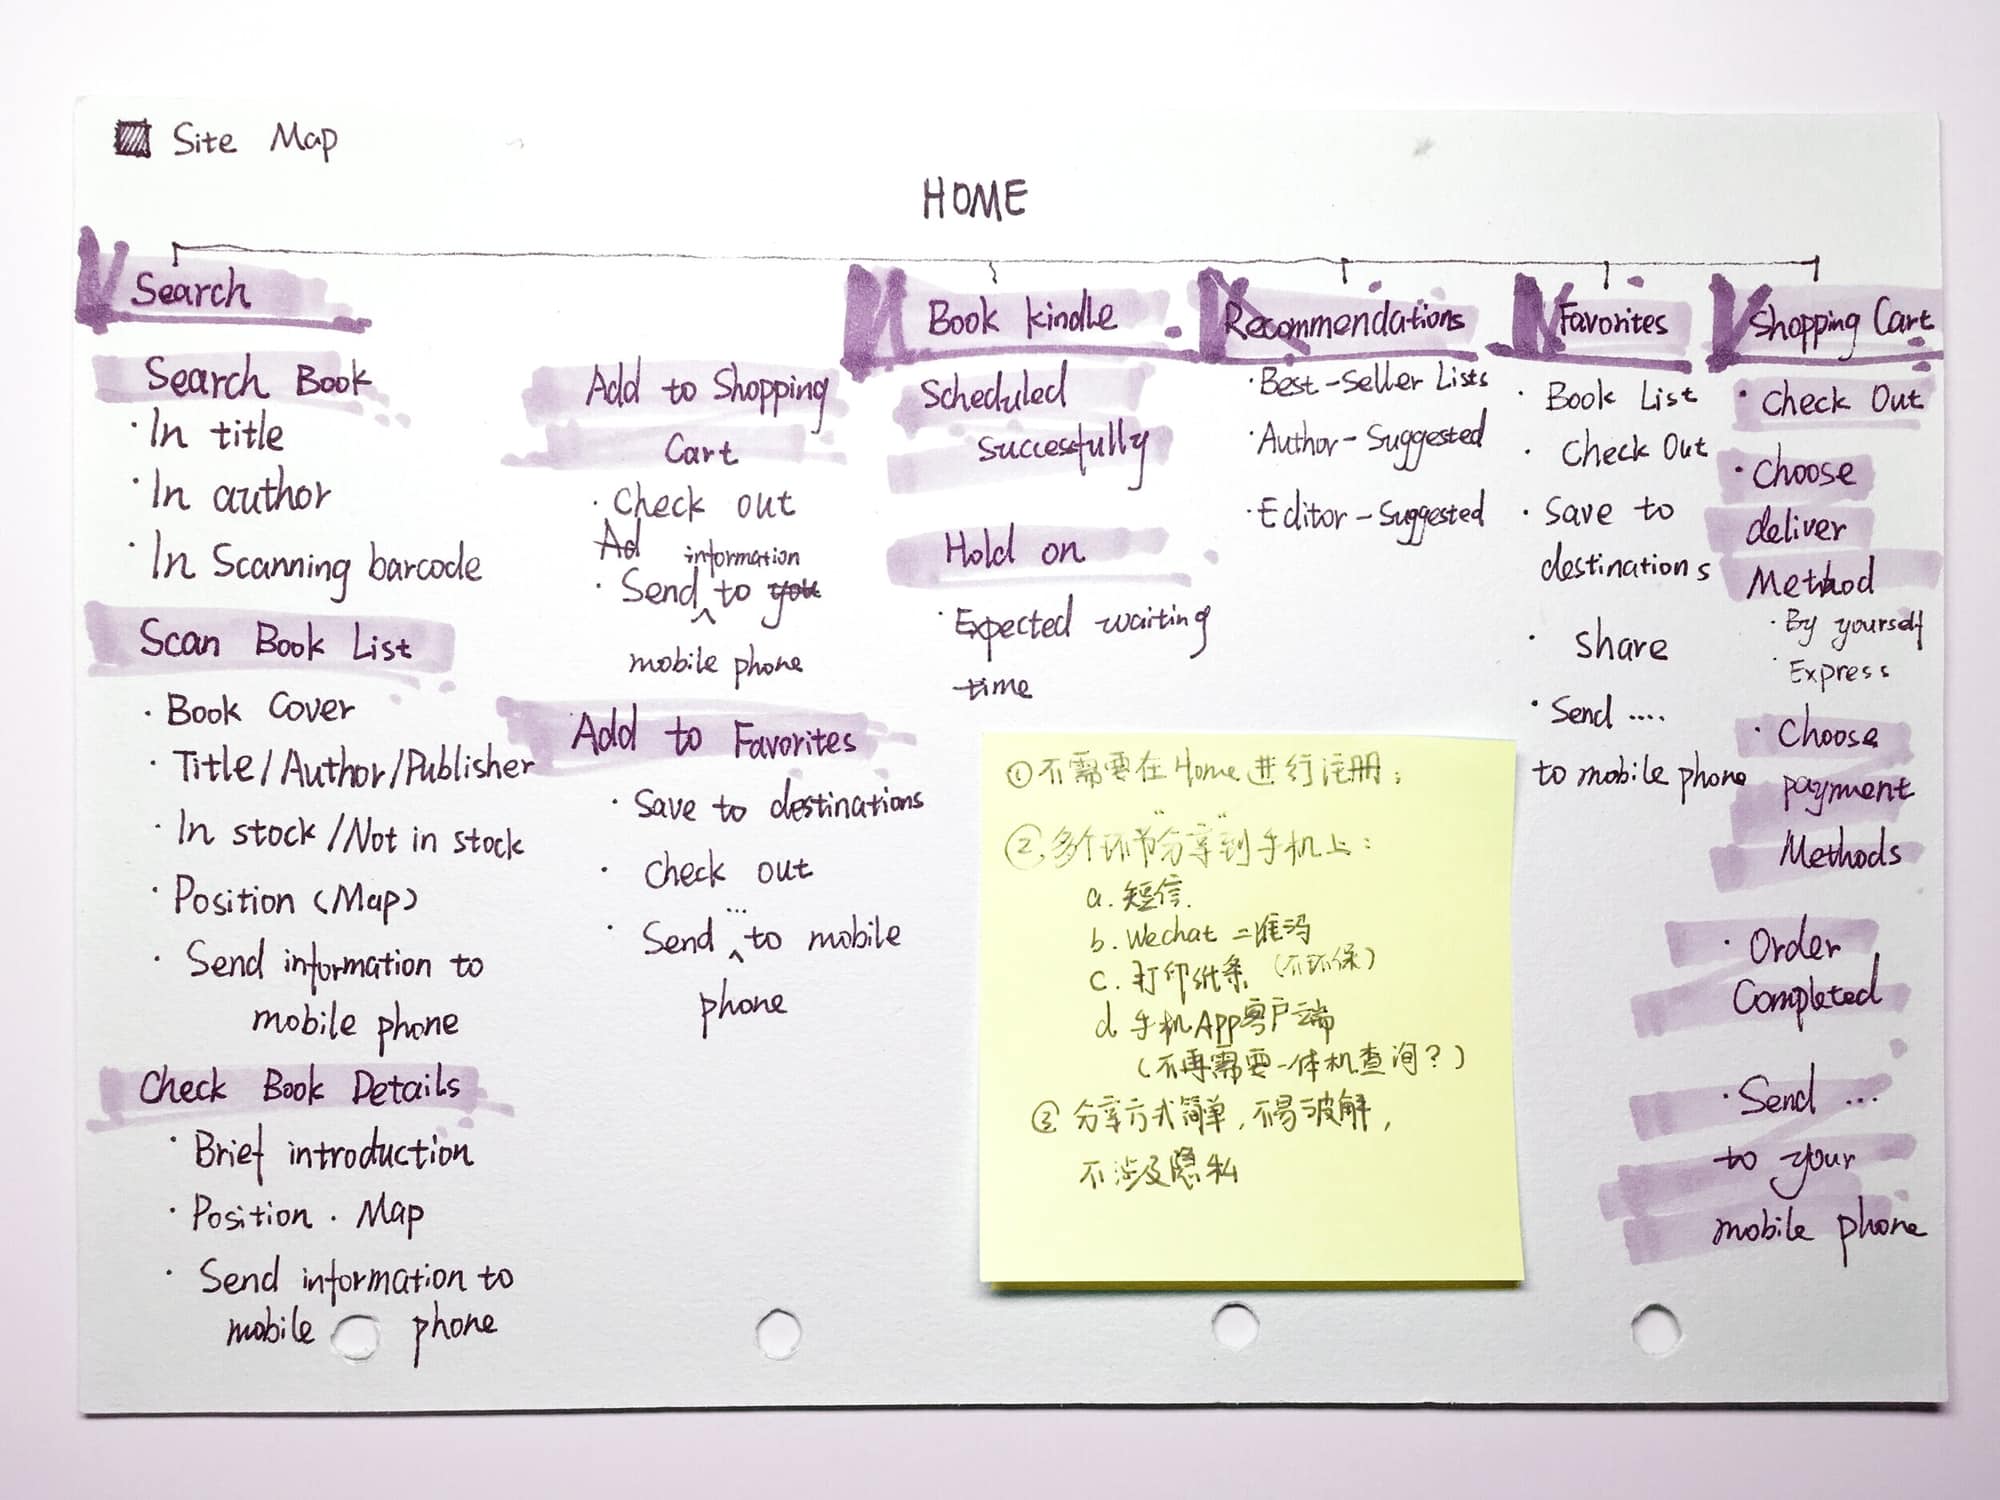 Site Map
HOME
Search
Search Book
· In title
· In author
· In Scanning barcode
Scan Book List
· Book Cover
· Title/Author/Publisher
· In stock/Not in stock
· Position (Map)
· Send information to
mobile phone
Check Book Details
· Brief introduction
· Position · Map
· Send information to
mobile phone
Add to Shopping
Cart
· Check out
Ad
information
· Send to you
mobile phone
Add to Favorites
· Save to destinations
· Check out
...
· Send to mobile
phone
Book kindle
Scheduled
successfully
Hold on
· Expected waiting
time
Recommendations
· Best-Seller Lists
· Author-Suggested
· Editor-Suggested
Favorites
· Book List
· Check Out
· Save to
destinations
· Share
· Send ....
to mobile phone
Shopping Cart
· Check Out
· Choose
deliver
Method
· By yourself
· Express
· Choose
payment
Methods
· Order
Completed
· Send ...
to your
mobile phone
①不需要在Home进行注册；
②多个环节“分享”到手机上：
a. 短信.
b. Wechat 二维码
c. 打印纸条（不环保）
d. 手机App客户端
（不再需要一体机查询？）
③ 分享方式简单，不易破解，
不涉及隐私